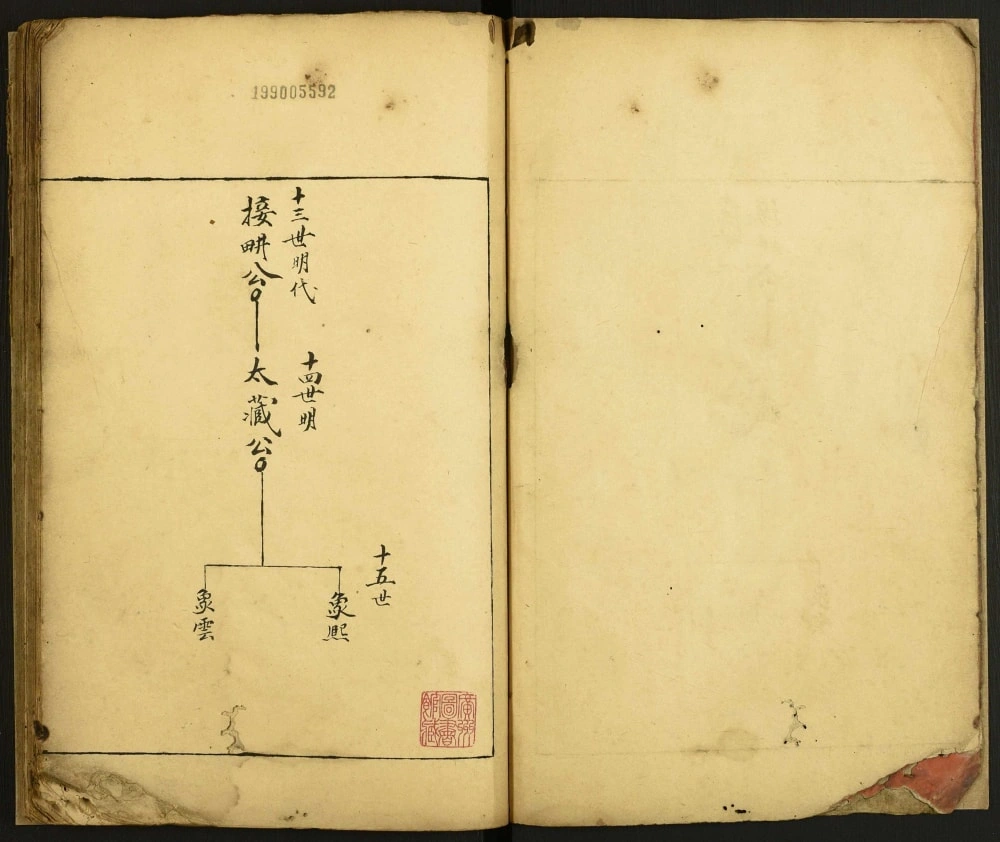 199005592
十三世明代
接畊公
十四世明
太藏公
十五世
象熙
象雲
廣州
圖書
館藏